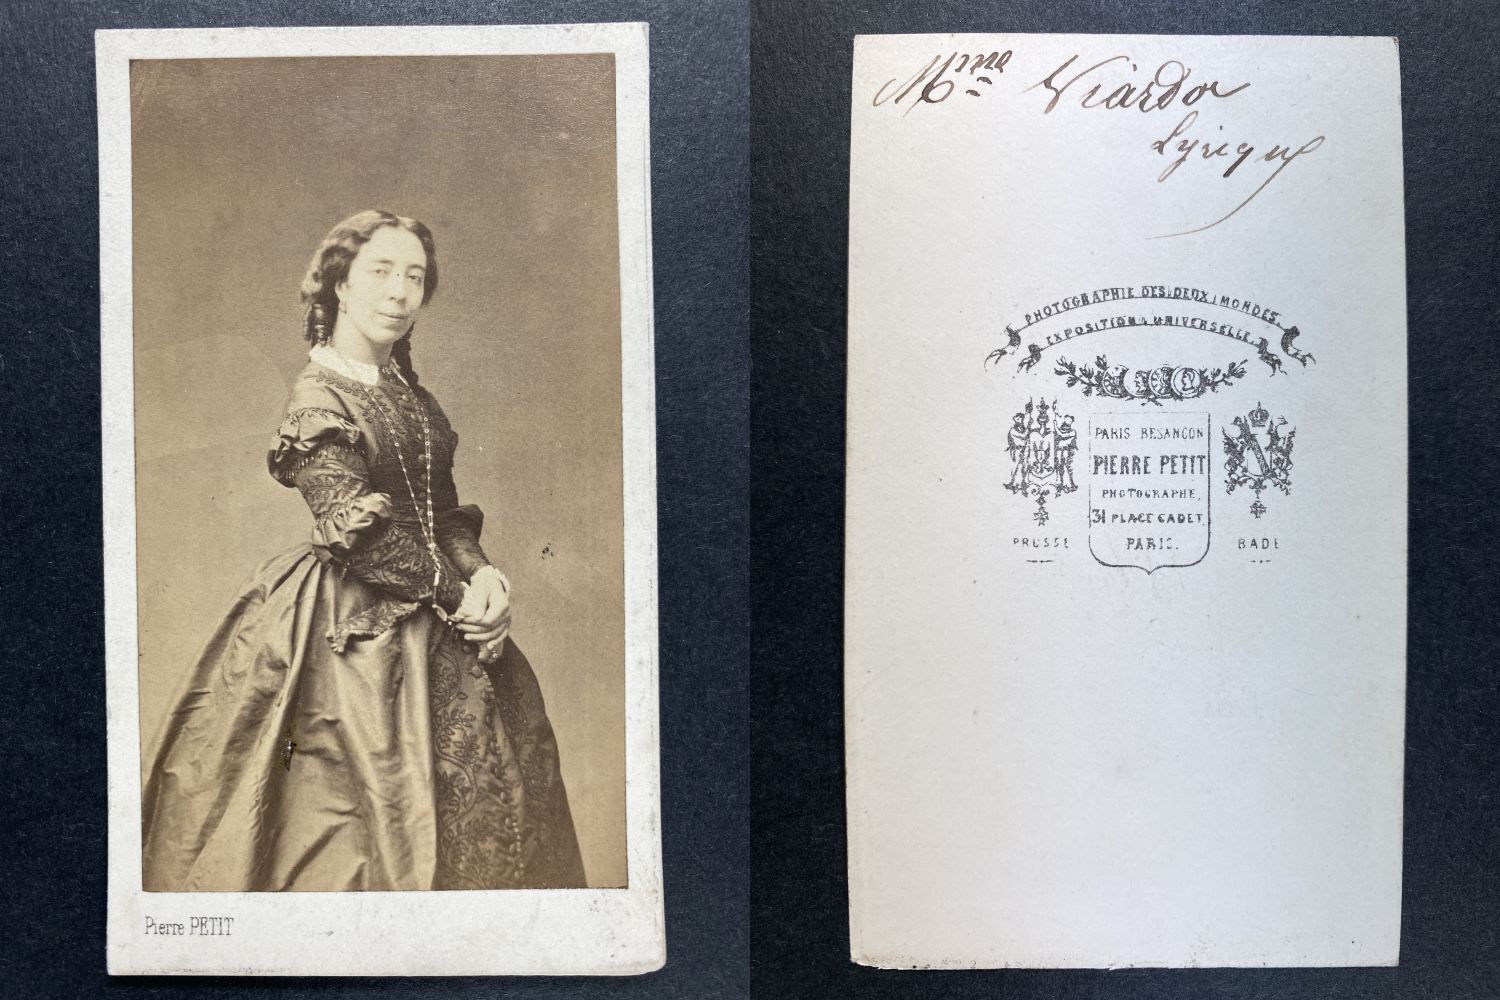 Pierre PETIT
Mme Viardo
Lyrique
PHOTOGRAPHIE DES DEUX MONDES.
EXPOSITION UNIVERSELLE.
PARIS BESANCON
PIERRE PETIT
PHOTOGRAPHE,
31 PLACE CADET,
PARIS.
PRUSSE
BADE